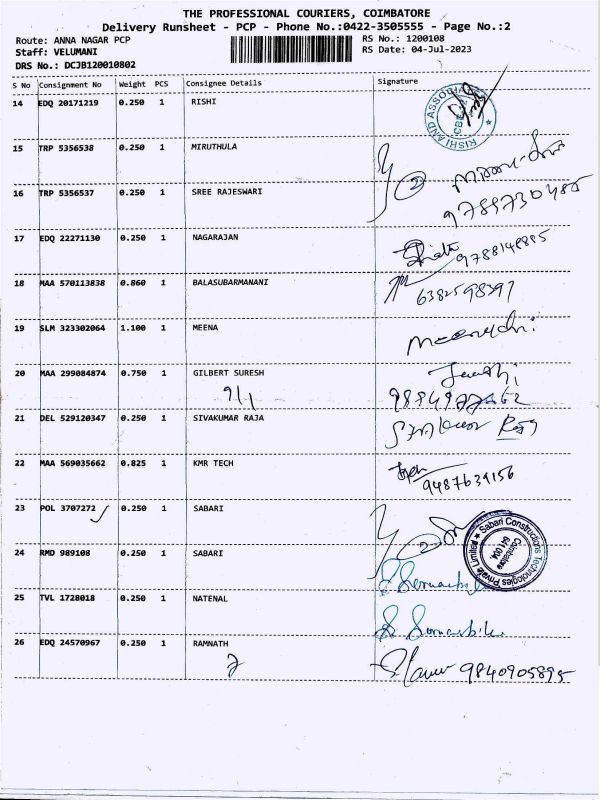 THE PROFESSIONAL COURIERS, COIMBATORE
Delivery Runsheet - PCP - Phone No.:0422-3505555 - Page No.:2
Route: ANNA NAGAR PCP
RS No.: 1200108
Staff: VELUMANI
RS Date: 04-Jul-2023
DRS No.: DCJB120010802
S No Consignment No Weight PCS Consignee Details Signature
14 EDQ 20171219 0.250 1 RISHI
RISHI AND ASSOCIATES
15 TRP 5356538 0.250 1 MIRUTHULA
16 TRP 5356537 0.250 1 SREE RAJESWARI
9789730485
17 EDQ 22271130 0.250 1 NAGARAJAN
9788148895
18 MAA 570113838 0.860 1 BALASUBARMANANI
6382598397
19 SLM 323302064 1.100 1 MEENA
Meenakshi
20 MAA 299084874 0.750 1 GILBERT SURESH
9/1
21 DEL 529120347 0.250 1 SIVAKUMAR RAJA
22 MAA 569035662 0.825 1 KMR TECH
9487639156
23 POL 3707272 0.250 1 SABARI
Sabari Constructions Technologies Private Limited
Coimbatore
641 004.
24 RMD 989108 0.250 1 SABARI
25 TVL 1728018 0.250 1 NATENAL
26 EDQ 24570967 0.250 1 RAMNATH
9840905895